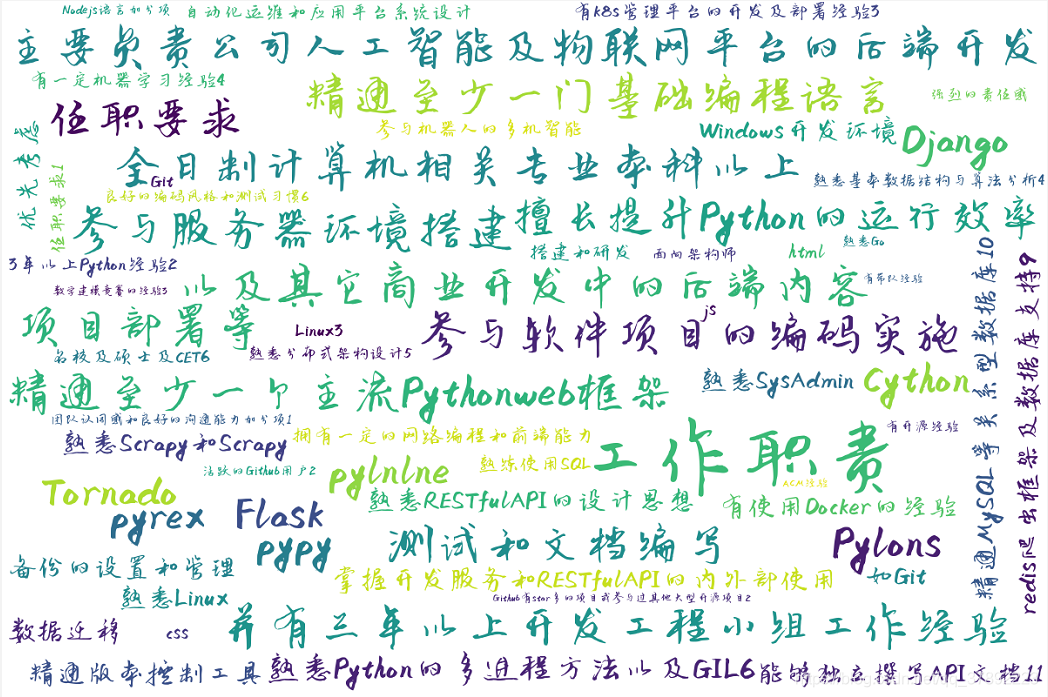 Nodejs语言加分项
自动化运维和应用平台系统设计
有k8s管理平台的开发及部署经验3
主要负责公司人工智能及物联网平台的后端开发
有一定机器学习经验4
精通至少一门基础编程语言
强烈的责任感
任职要求
参与机器人的多机智能
Windows开发环境
Django
优先考虑
任职要求1
全日制计算机相关专业本科以上
Git
熟悉基本数据结构与算法分析4
良好的编码风格和测试习惯6
参与服务器环境搭建
擅长提升Python的运行效率
搭建和研发
面向架构师
html
熟悉Go
3年以上Python经验2
数学建模竞赛的经验3
以及其它商业开发中的后端内容
有带队经验
精通MySQL等关系型数据库10
redis爬虫框架及数据库支持9
项目部署等
Linux3
参与软件项目的编码实施
js
名校及硕士及CET6
熟悉分布式架构设计5
精通至少一个主流Pythonweb框架
熟悉SysAdmin
Cython
团队认同感和良好的沟通能力加分项1
熟悉Scrapy和Scrapy
拥有一定的网络编程和前端能力
工作职责
有开源经验
活跃的Github用户2
pylnlne
熟练使用SQL
ACM经验
Tornado
熟悉RESTfulAPI的设计思想
有使用Docker的经验
pyrex
Flask
pypy
测试和文档编写
Pylons
备份的设置和管理
掌握开发服务和RESTfulAPI的内外部使用
如Git
熟悉Linux
Github有star多的项目或参与过其他大型开源项目2
数据迁移
css
并有三年以上开发工程小组工作经验
精通版本控制工具
熟悉Python的多进程方法以及GIL6
能够独立撰写API文档11